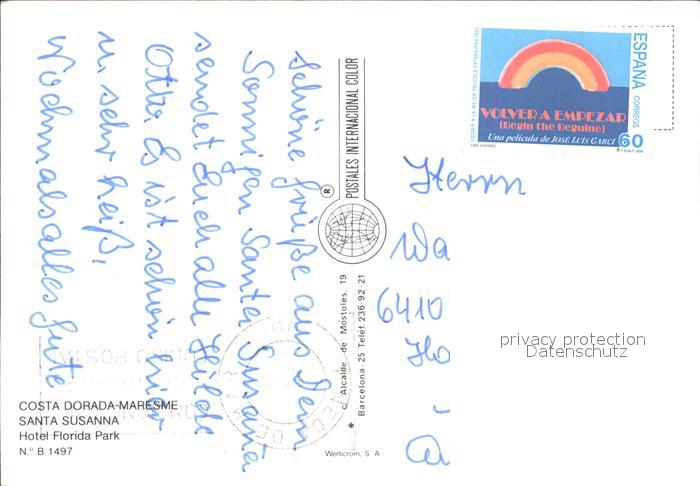 Schöne Grüße aus Dem
Sonnigen Santa Susanna
sendet Euch alle Hilde
Otto. Es ist schön hier
u. sehr heiß,
Nochmals alles Gute
COSTA DORADA-MARESME
SANTA SUSANNA
Hotel Florida Park
N.º B 1497
POSTALES INTERNACIONAL COLOR
®
c. Alcalde de Móstoles, 19
* Barcelona-25 Teléf. 236-92-21
Werticrom, S. A.
OSCAR A LA MEJOR PELICULA EXTRANJERA 1982
ESPAÑA
CORREOS
VOLVER A EMPEZAR
(Begin the Beguine)
Una película de JOSE LUIS GARCI
60
CINE ESPAÑOL
Herrn
Wa
6410
Ho
privacy protection
Datenschutz